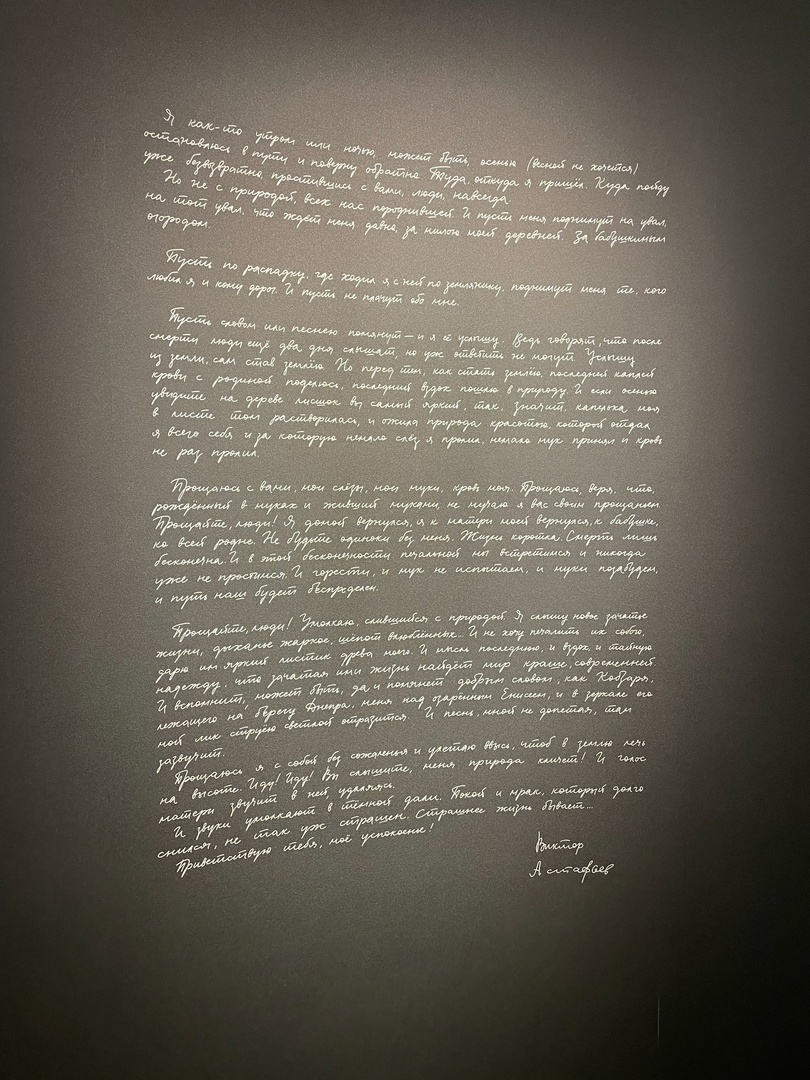 Я как-то утром или ночью, может быть, осенью (весной не хочется)
остановлюсь в пути и поверну обратно. Туда, откуда я пришёл. Куда пойду
уже безвозвратно, простившись с вами, люди, навсегда.
Но не с природой, всех нас породнившей. И пусть меня поднимут на увал,
на тот увал, что ждёт меня давно, за милою моей деревней. За бабушкиным
огородом.
Пусть по распадку, где ходил я с ней по землянику, поднимут меня те, кого
любил я и кому дорог. И пусть не плачут обо мне.
Пусть словом или песнею помянут — и я её услышу. Ведь говорят, что после
смерти люди ещё два дня слышат, но уж ответить не могут. Услышу
из земли, сам став землёю. Но перед тем, как стать землёю, последней каплей
крови с родиной поделюсь, последний вздох пошлю в природу. И если осенью
увидите на дереве листок вы самый яркий, так, значит, капелька моя
в листе том растворилась, и ожила природа красотою, которой отдал
я всего себя и за которую немало слёз я пролил, немало мук принял и кровь
не раз пролил.
Прощаюсь с вами, мои слёзы, мои муки, кровь моя. Прощаюсь, веря, что,
рождённый в муках и живший муками, не мучаю я вас своим прощанием.
Прощайте, люди! Я домой вернулся, я к матери моей вернулся, к бабушке,
ко всей родне. Не будьте одиноки без меня. Жизнь коротка. Смерть лишь
бесконечна. И в этой бесконечности печальной мы встретимся и никогда
уже не простимся. И горести, и мук не испытаем, и муки позабудем,
и путь наш будет беспределен.
Прощайте, люди! Умолкаю, слившийся с природой. Я слышу новое зачатье
жизни, дыханье жаркое, шёпот влюблённых... И не хочу печалить их собою,
дарю им яркий листик древа моего. И мысль последнюю, и вздох, и тайную
надежду, что зачатая ими жизнь найдёт мир краше, современней.
И вспомнит, может быть, да и помянет добрым словом, как Кобзаря,
лежащего на берегу Днепра, меня над озарённым Енисеем, и в зеркале его
мой лик струёю светлой отразится. И песнь, мной не допетая, там
зазвучит.
Прощаюсь я с собой без сожаленья и улетаю ввысь, чтоб в землю лечь
на высоте. Иду! Иду! Вы слышите, меня природа кличет! И голос
матери звучит в ней удаляясь.
И звуки умолкают в тёмной дали. Покой и мрак, который долго
снился, не так уж страшен. Страшнее жизнь бывает...
Приветствую тебя, моё успокоенье!
Виктор
Астафьев